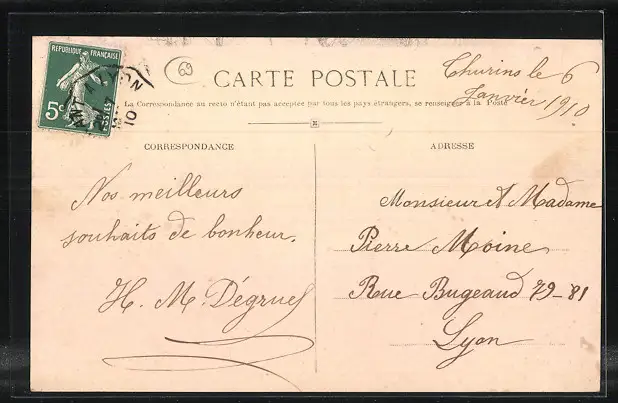 RÉPUBLIQUE FRANÇAISE
5c
POSTES
10
69
CARTE POSTALE
Thurins le 6
Janvier 1910
La Correspondance au recto n'étant pas acceptée par tous les pays étrangers, se renseigner à la Poste
CORRESPONDANCE
Nos meilleurs
souhaits de bonheur.
H. M. Dégruel
ADRESSE
Monsieur et Madame
Pierre Moine
Rue Bugeaud 79-81
Lyon